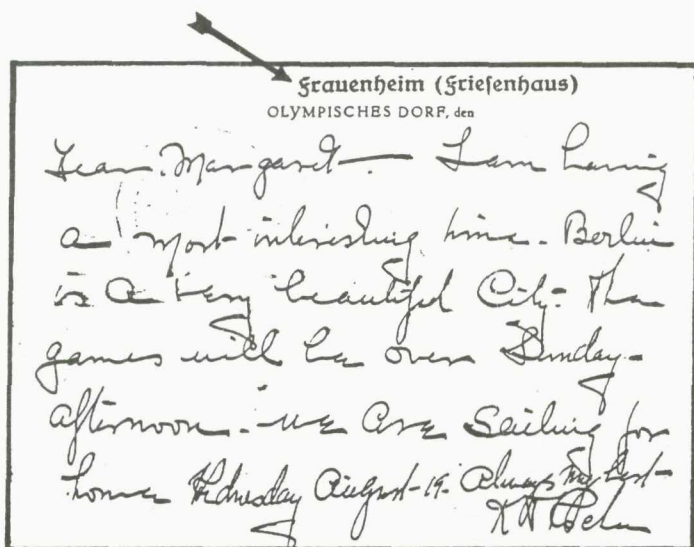 Frauenheim (Friesenhaus)
OLYMPISCHES DORF, den
Dear Margaret — I am having
a most interesting time. Berlin
is a very beautiful City. The
games will be over Sunday
afternoon. we are sailing for
home Wednesday August 19. Always my best